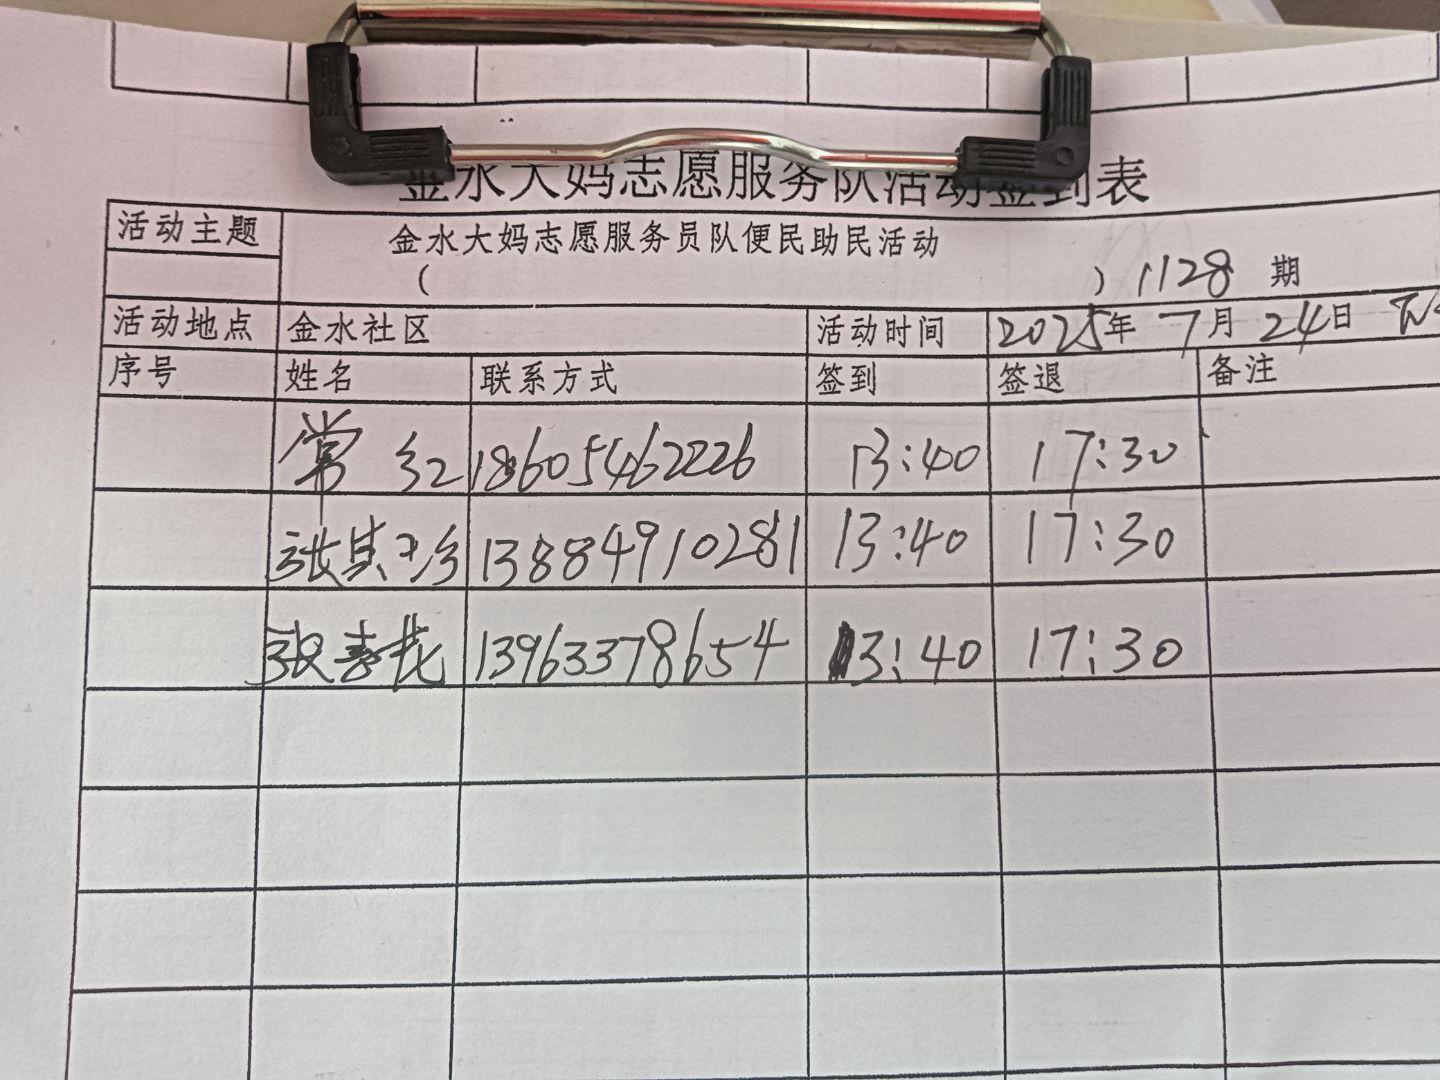 金水大妈志愿服务队活动签到表
活动主题 金水大妈志愿服务员队便民助民活动
( ) 1128 期
活动地点 金水社区 活动时间 2025年 7月 24日
序号 姓名 联系方式 签到 签退 备注
常 红 18605462226 13:40 17:30
张其珍 13884910281 13:40 17:30
张春花 13963378654 13:40 17:30